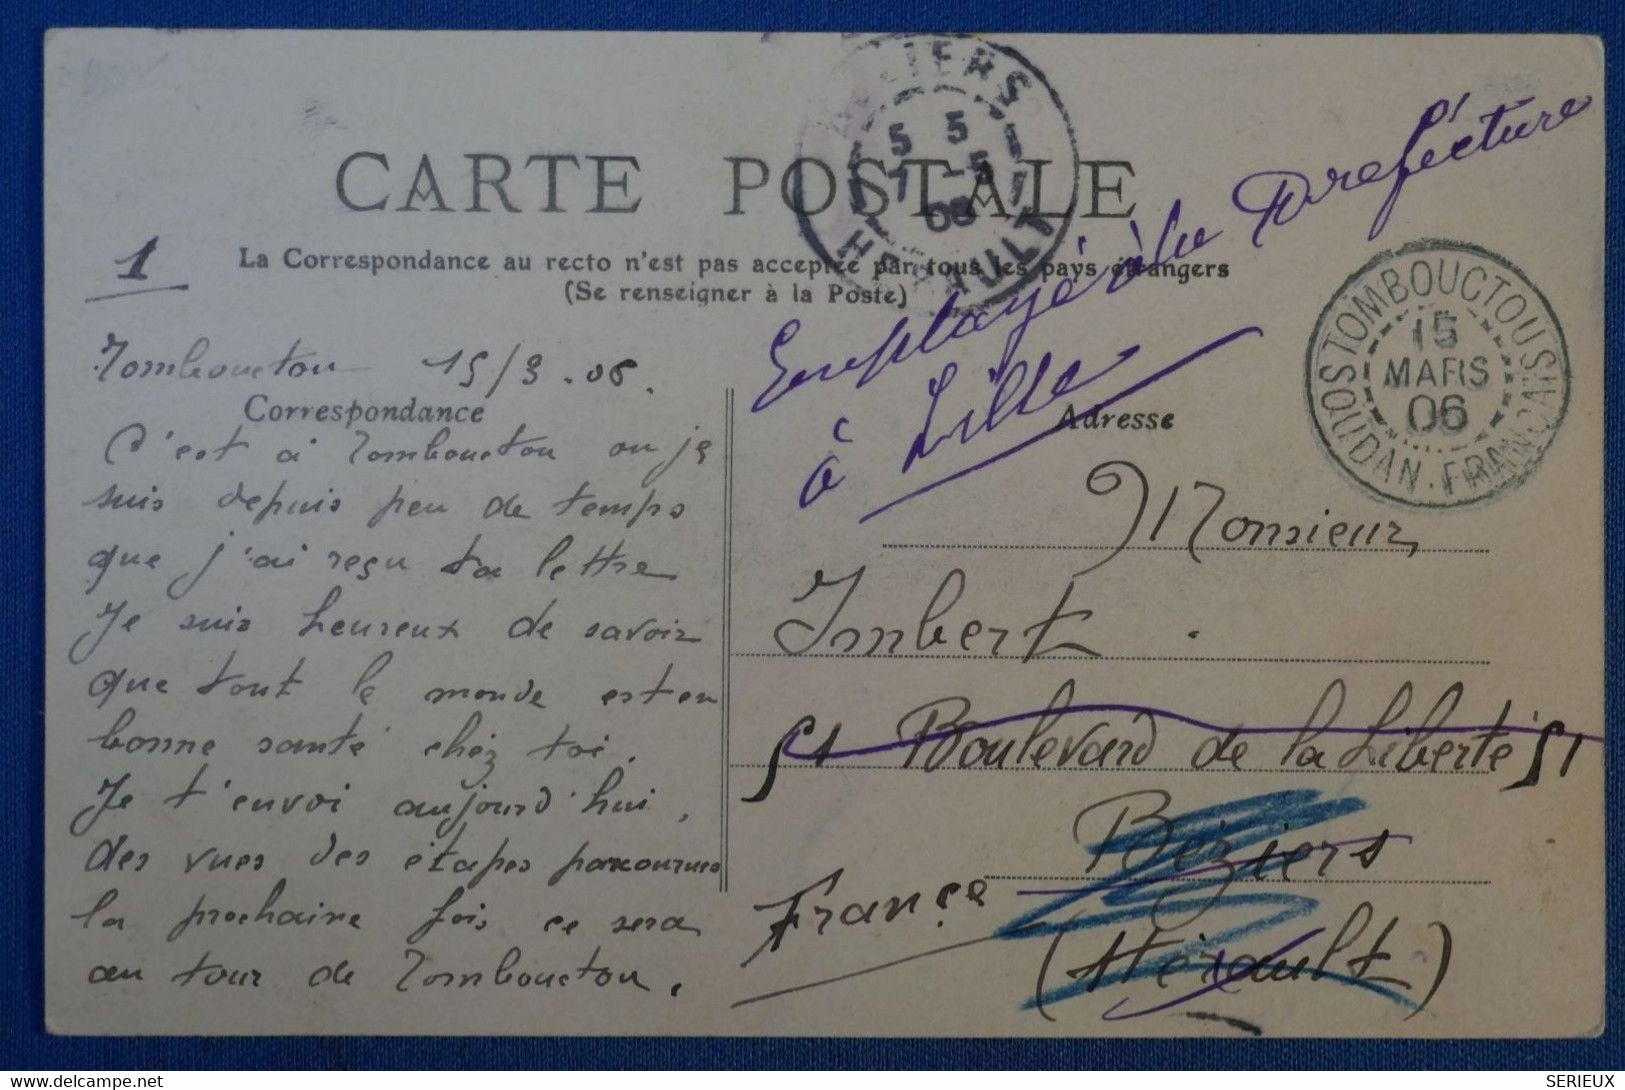 BEZIERS
5 5
7 -5
06
HERAULT
CARTE POSTALE
La Correspondance au recto n'est pas acceptée par tous les pays étrangers
(Se renseigner à la Poste)
1
Employé à la Préfecture
à Lille
TOMBOUCTOU SOUDAN-FRANÇAIS
15
MARS
06
Tombouctou 15/3.06.
Correspondance
C'est à Tombouctou ou je
suis depuis peu de temps
que j'ai reçu ta lettre
Je suis heureux de savoir
que tout le monde est en
bonne santé chez toi.
Je t'envoi aujourd'hui,
des vues des étapes parcourues
la prochaine fois ce sera
au tour de Tombouctou.
Adresse
Monsieur
Imbert.
51 Boulevard de la Liberté 51
Béziers
France
(Hérault)
SERIEUX